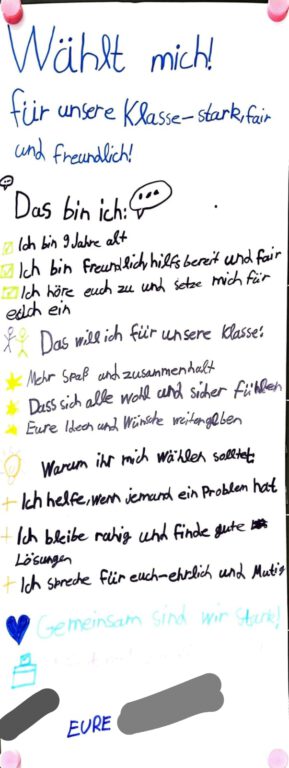 Wählt mich!
für unsere Klasse-stark, fair
und freundlich!
Das bin ich:
Ich bin 9 Jahre alt
Ich bin freundlich, hilfsbereit und fair
Ich höre euch zu und setze mich für
euch ein
Das will ich für unsere Klasse:
Mehr Spaß und zusammenhalt
Dass sich alle wohl und sicher fühlen
Eure Ideen und Wünsche weitergeben
Warum ihr mich wählen solltet
Ich helfe, wenn jemand ein Problem hat
Ich bleibe ruhig und finde gute
Lösungen
Ich spreche für euch-ehrlich und Mutig
Gemeinsam sind wir stark!
EURE